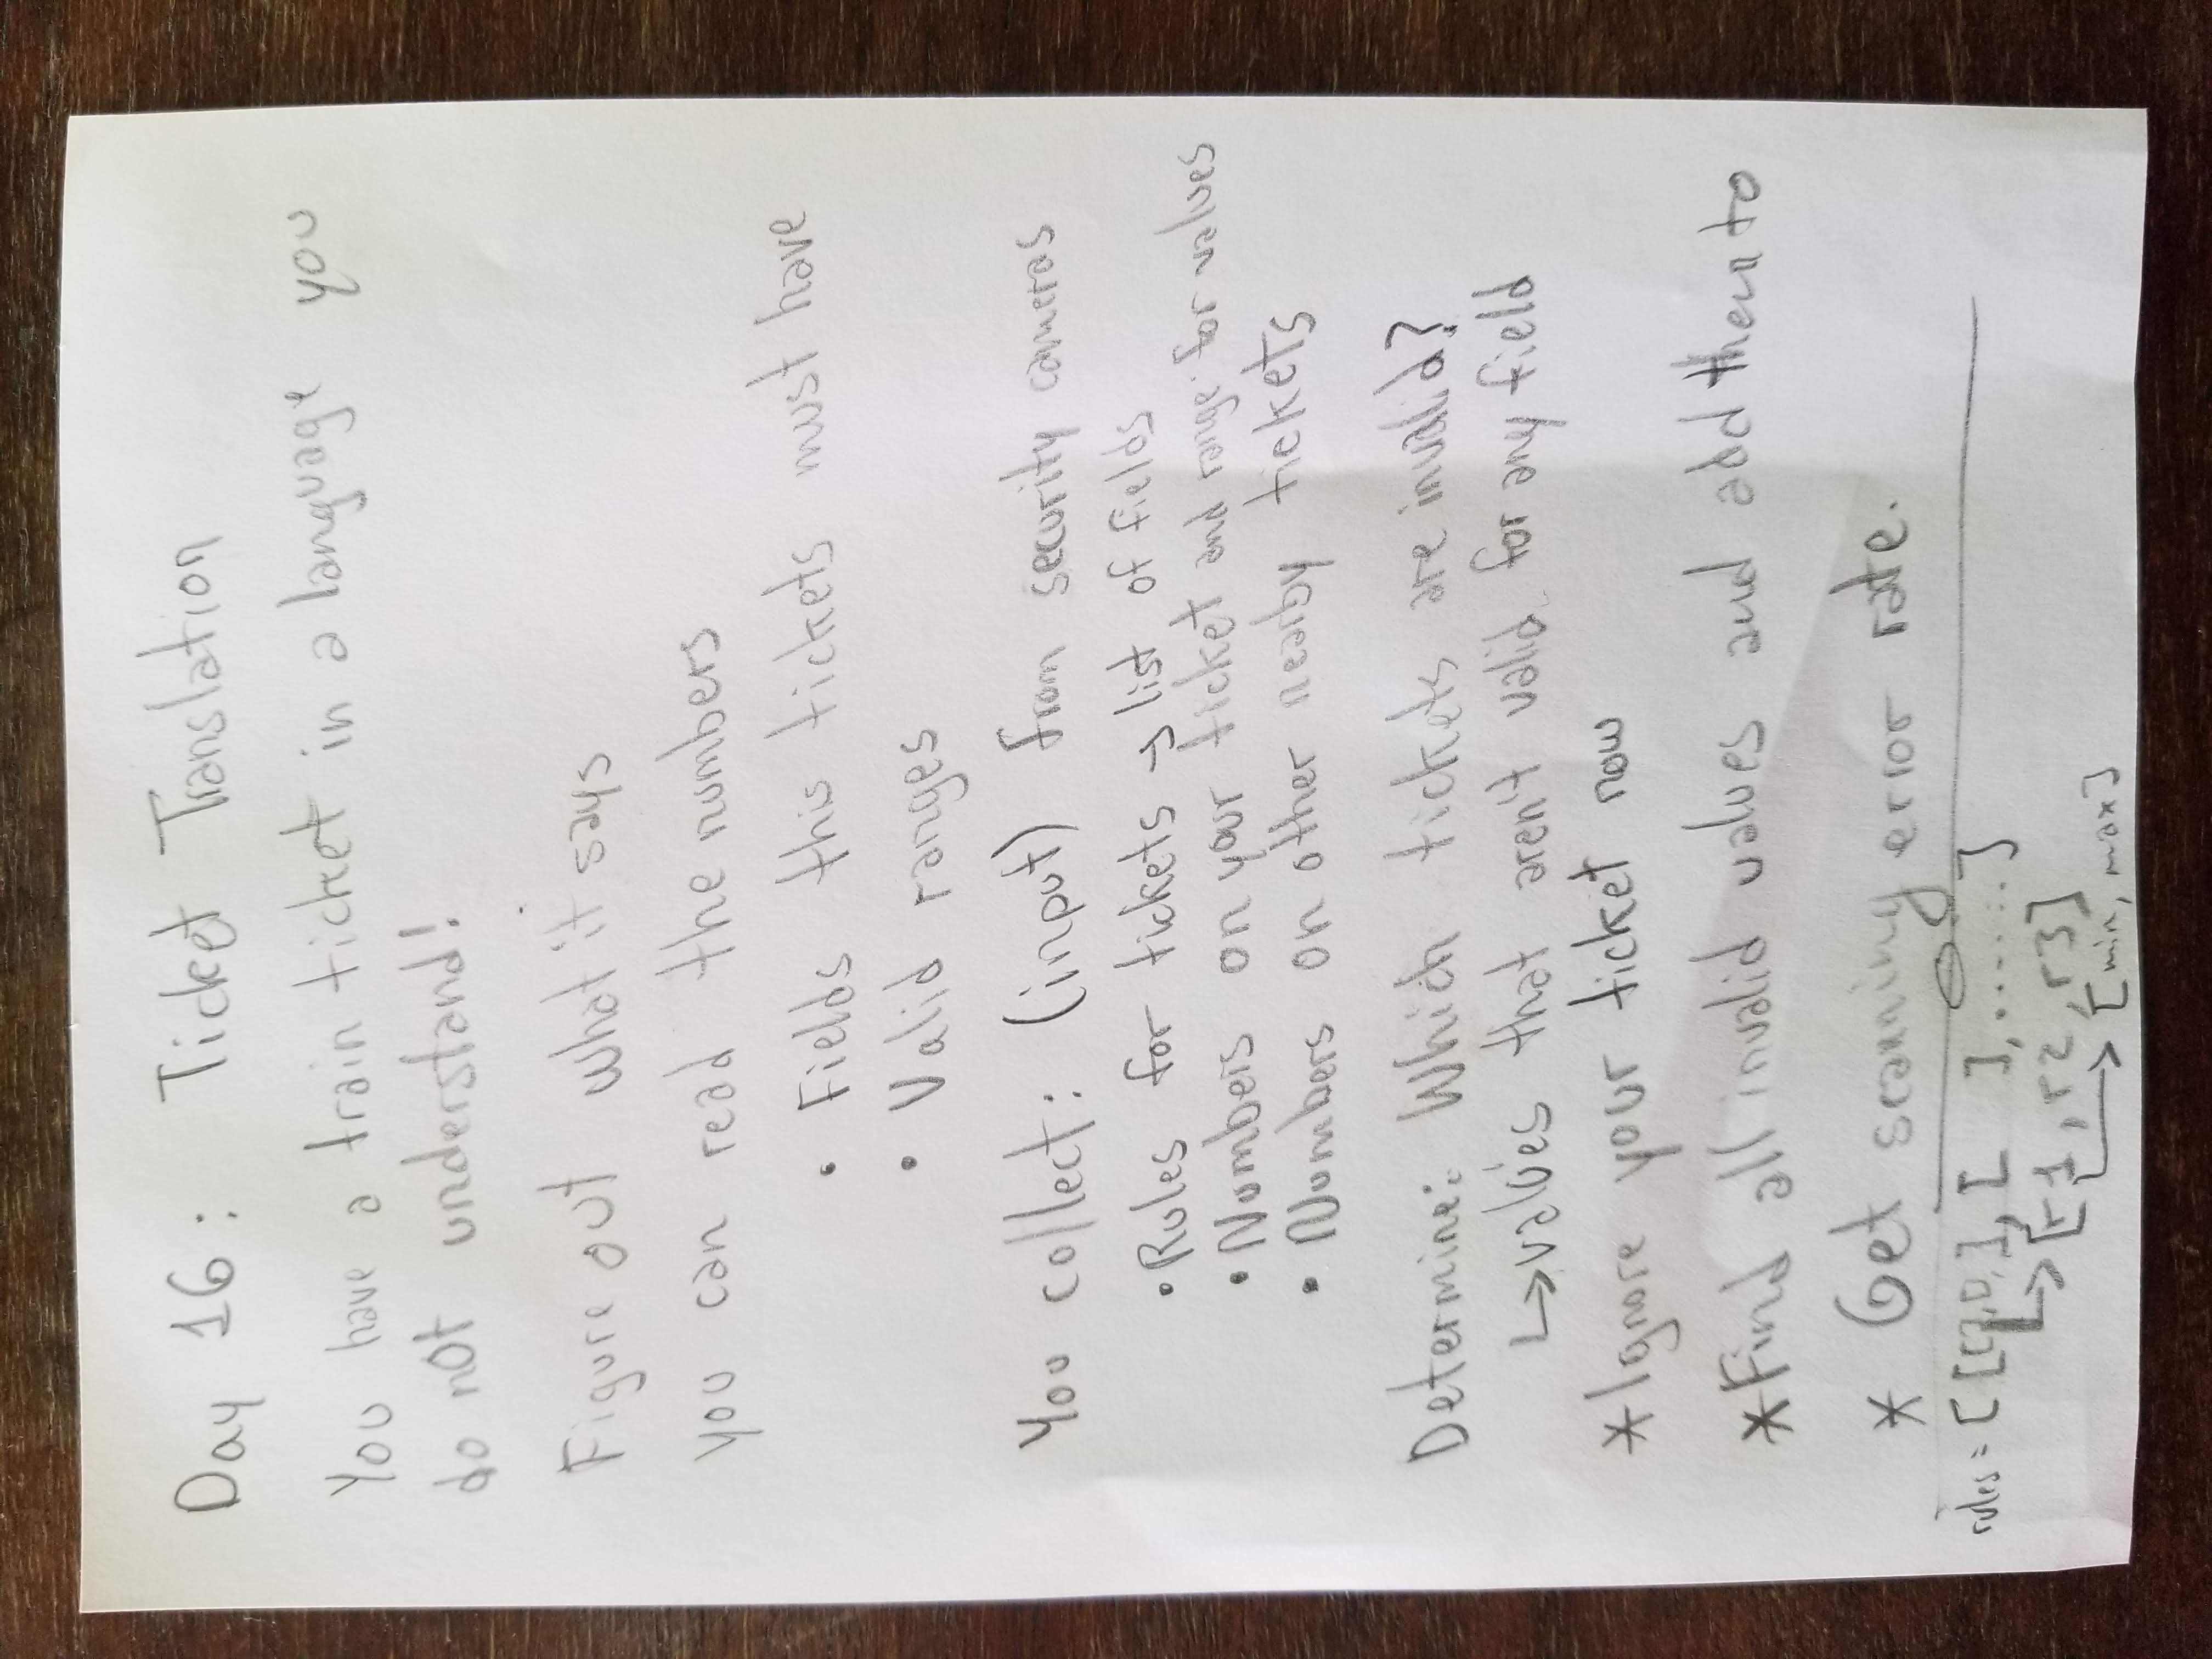 Day 16: Ticket Translation
You have a train ticket in a language you
do not understand!
Figure out what it says
you can read the numbers
• Fields this tickets must have
• Valid ranges
You collect: (input) from security cameras
• Rules for tickets → list of fields
• Numbers on your ticket and range for values
• Numbers on other nearby tickets
Determine: Which tickets are invalid?
↳ values that aren't valid for any field
* Ignore your ticket now
* Find all invalid values and add them to
* Get scanning error rate.
rules = [ [[],[],], [ ], ....... ]
↳ [r1, r2, r3]
↳ [min, max]